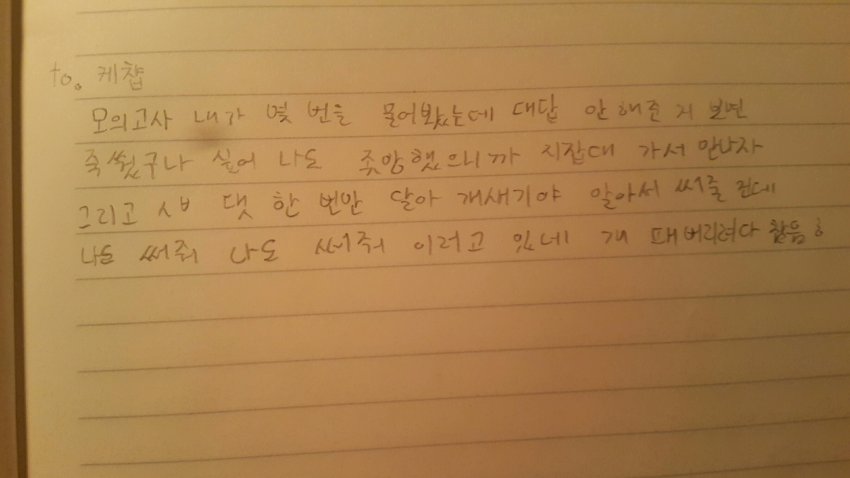 to. 케챱
모의고사 내가 몇 번을 물어봤는데 대답 안 해준 거 보면
죽쒔구나 싶어 나도 좆망했으니까 지잡대 가서 만나자
그리고 시ㅂ 댓 한 번만 달아 개새기야 알아서 써줄 건데
나도 써줘 나도 써줘 이러고 있네 개 패버리려다 참음ㅎ